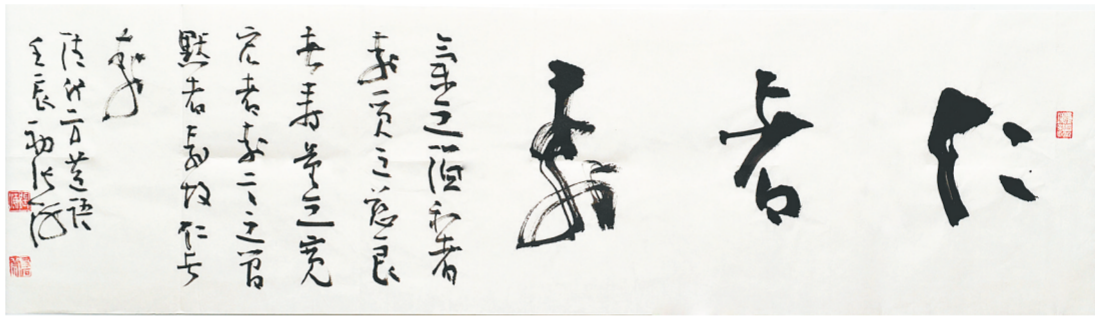 仁者寿
氣之温和者
寿质之慈良
者寿量之宽
宏者寿言之简
默者寿故仁者
寿
清代方苞语
壬辰初张海